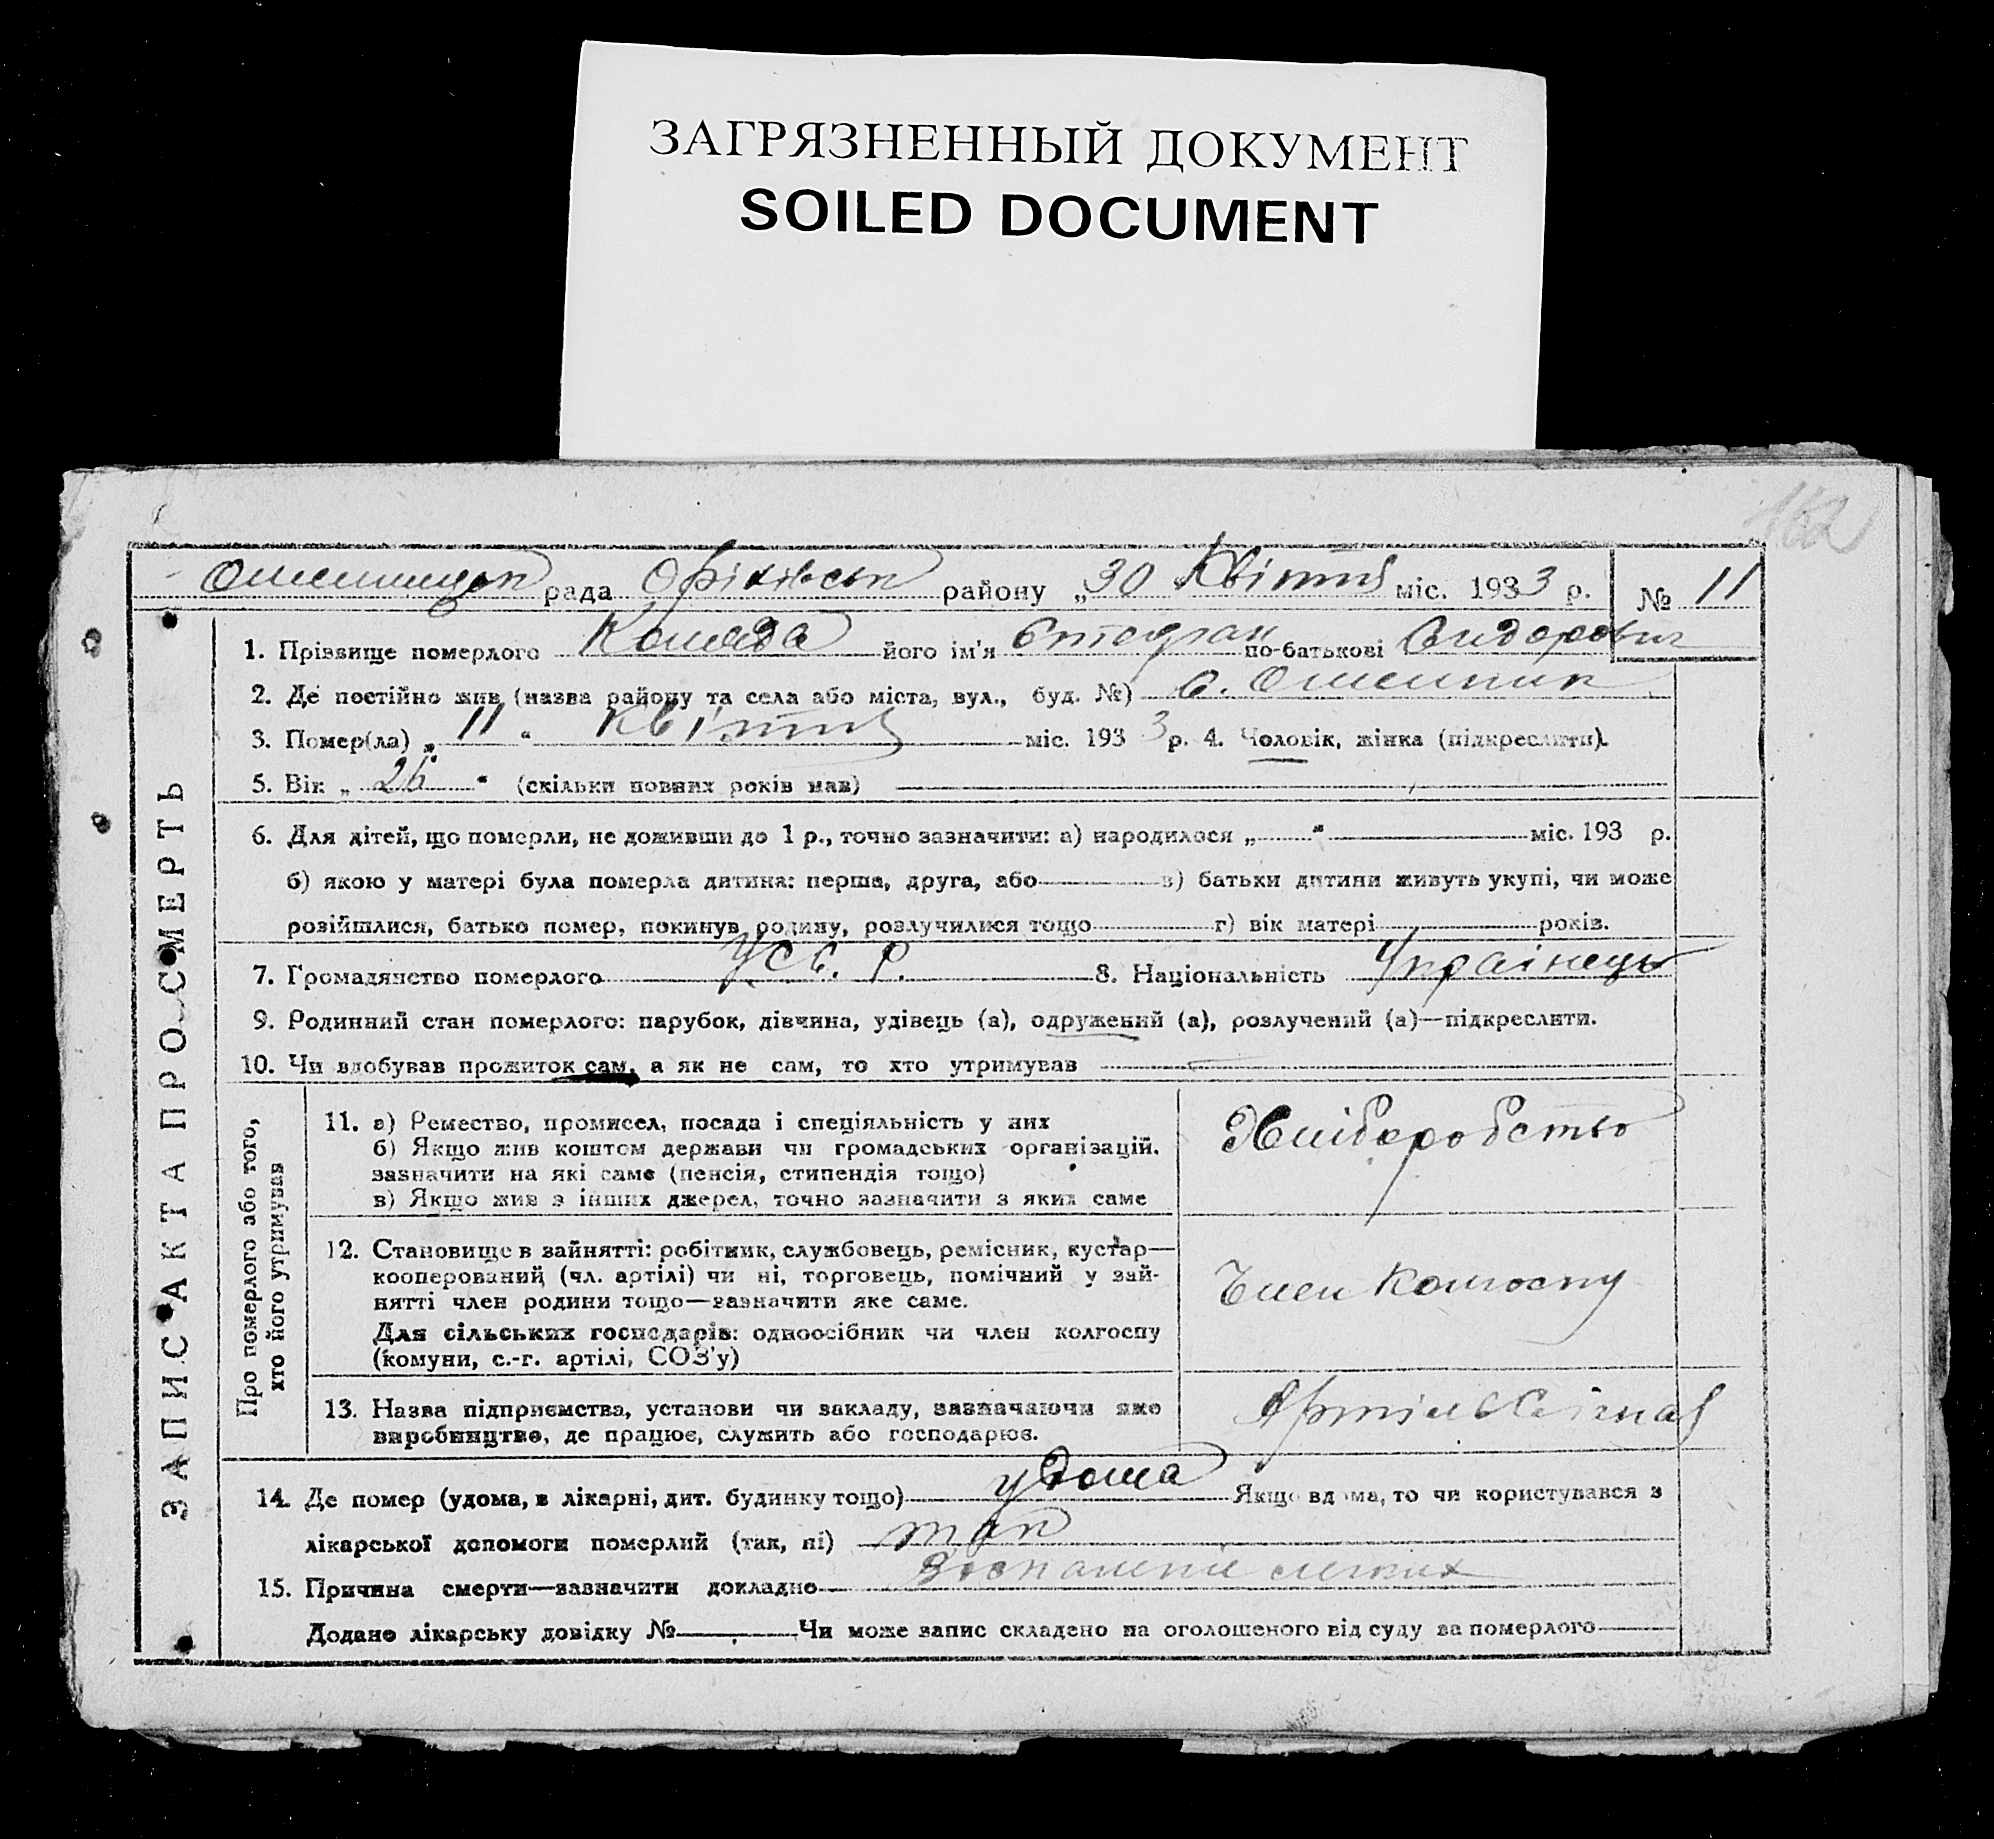 ЗАГРЯЗНЕННЫЙ ДОКУМЕНТ
SOILED DOCUMENT
162
рада Оріхівськ району „30 Квітня міс. 1933 р. № 11
1. Прізвище померлого Коляда його ім'я Степан по-батькові Сидорович
2. Де постійно жив (назва району та села або міста, вул., буд. №) с.
3. Помер(ла) „ 11 “ Квітня міс. 193 3 р. 4. Чоловік, жінка (підкреслити).
5. Вік „ 26 “ (скільки повних років мав)
6. Для дітей, що померли, не доживши до 1 р., точно зазначити: а) народилося „ “ міс. 193 р.
б) якою у матері була померла дитина: перша, друга, або в) батьки дитини живуть укупі, чи може
розійшлися, батько помер, покинув родину, розлучилися тощо г) вік матері років.
7. Громадянство померлого У.С.С.Р. 8. Національність Українець
9. Родинний стан померлого: парубок, дівчина, удівець (а), одружений (а), розлучений (а)—підкреслити.
10. Чи здобував прожиток сам, а як не сам, то хто утримував
ЗАПИС АКТА ПРО СМЕРТЬ
Про померлого або того,
хто його утримував
11. а) Ремество, промисел, посада і спеціяльність у них
б) Якщо жив коштом держави чи громадських організацій.
зазначити на які саме (пенсія, стипендія тощо)
в) Якщо жив з інших джерел, точно зазначити з яких саме
Хліборобство
12. Становище в зайнятті: робітник, службовець, ремісник, кустар—
кооперований (чл. артілі) чи ні, торговець, помічний у зай-
нятті член родини тощо—зазначити яке саме.
Для сільських господарів: одноосібник чи член колгоспу
(комуни, с.-г. артілі, СОЗ'у)
Член колгоспу
13. Назва підприємства, установи чи закладу, зазначаючи яке
виробництво, де працює, служить або господарює.
Артіль
14. Де помер (удома, в лікарні, дит. будинку тощо) удома Якщо вдома, то чи користувався з
лікарської допомоги померлий (так, ні) так
15. Причина смерти—зазначити докладно
Додано лікарську довідку № Чи може запис складено на оголошеного від суду за померлого